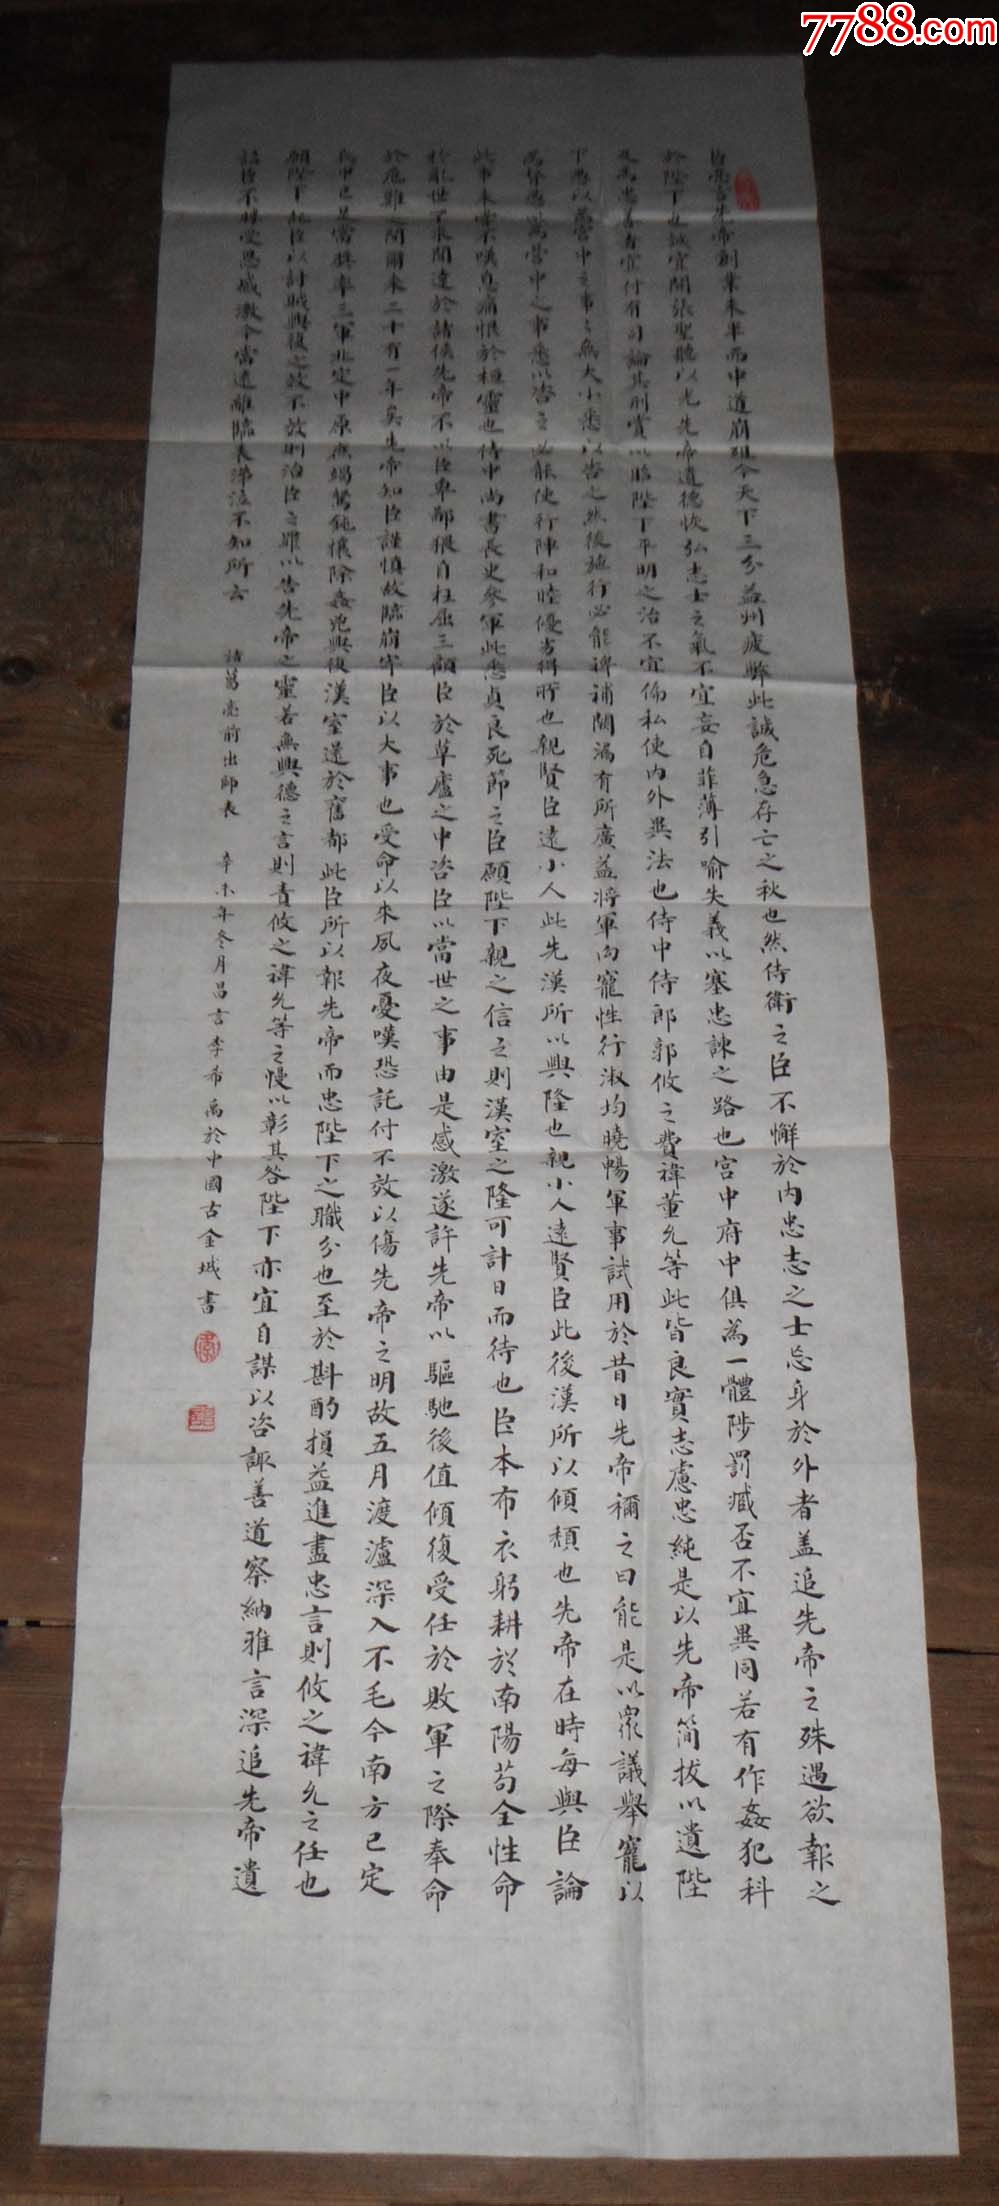 7788.com
臣亮言先帝創業未半而中道崩殂今天下三分益州疲弊此誠危急存亡之秋也然侍衛之臣不懈於內忠志之士忘身於外者盖追先帝之殊遇欲報之
於陛下也誠宜開張聖聽以光先帝遺德恢弘志士之氣不宜妄自菲薄引喻失義以塞忠諫之路也宮中府中俱為一體陟罰臧否不宜異同若有作姦犯科
及為忠善者宜付有司論其刑賞以昭陛下平明之治不宜偏私使內外異法也侍中侍郎郭攸之費禕董允等此皆良實志慮忠純是以先帝簡拔以遺陛
下愚以為宮中之事事無大小悉以咨之然後施行必能裨補闕漏有所廣益將軍向寵性行淑均曉暢軍事試用於昔日先帝稱之曰能是以眾議舉寵以
為督愚以為營中之事悉以咨之必能使行陣和睦優劣得所也親賢臣遠小人此先漢所以興隆也親小人遠賢臣此後漢所以傾頹也先帝在時每與臣論
此事未嘗不嘆息痛恨於桓靈也侍中尚書長史參軍此悉貞良死節之臣願陛下親之信之則漢室之隆可計日而待也臣本布衣躬耕於南陽苟全性命
於亂世不求聞達於諸侯先帝不以臣卑鄙猥自枉屈三顧臣於草廬之中咨臣以當世之事由是感激遂許先帝以驅馳後值傾復受任於敗軍之際奉命
於危難之間爾來二十有一年矣先帝知臣謹慎故臨崩寄臣以大事也受命以來夙夜憂嘆恐託付不效以傷先帝之明故五月渡瀘深入不毛今南方已定
兵甲已足當獎率三軍北定中原庶竭駑鈍攘除姦兇興復漢室還於舊都此臣所以報先帝而忠陛下之職分也至於斟酌損益進盡忠言則攸之禕允之任也
願陛下託臣以討賊興復之效不效則治臣之罪以告先帝之靈若無興德之言則責攸之禕允等之慢以彰其咎陛下亦宜自謀以咨諏善道察納雅言深追先帝遺
詔臣不勝受恩感激今當遠離臨表涕泣不知所云
諸葛亮前出師表 辛未年冬月昌言李希禹於中國古金城書